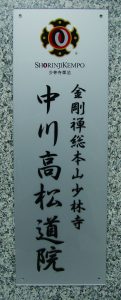 SHORINJIKEMPO
少林寺拳法
金剛禅総本山少林寺
中川高松道院